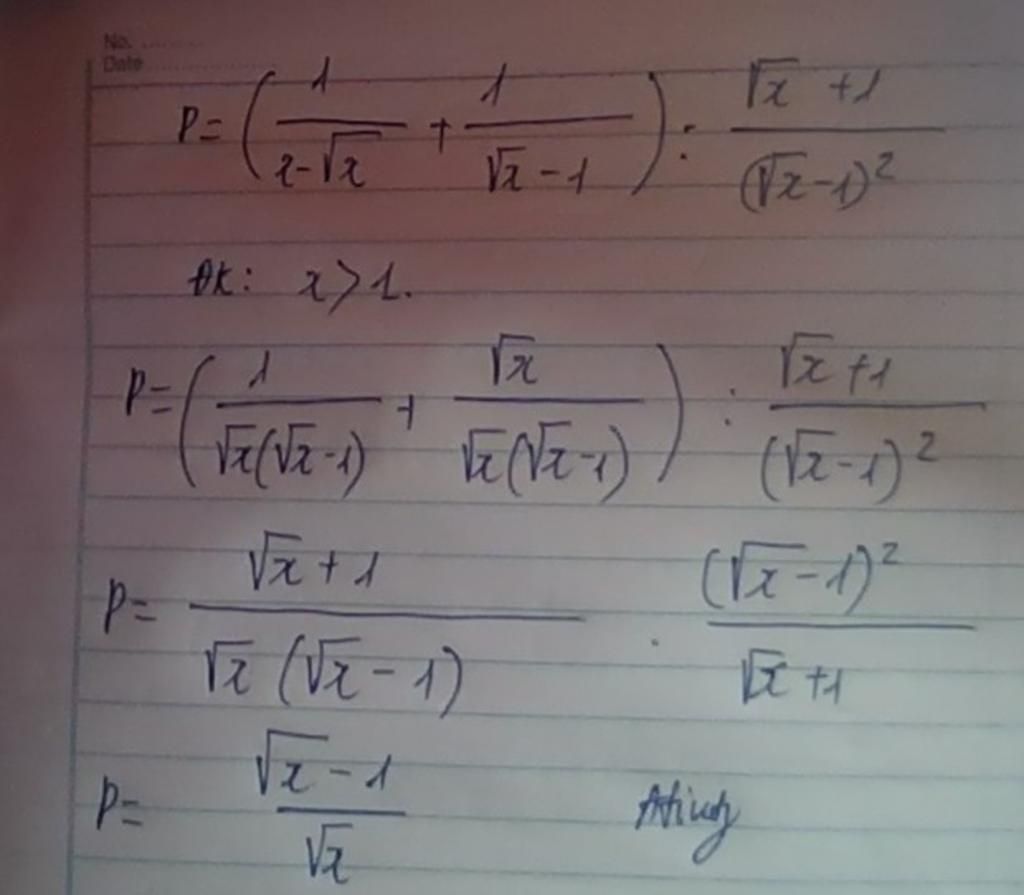 No. ........
Date ................
P = ( 1/(x-√x) + 1/(√x - 1) ) : (√x + 1)/(√x - 1)²
ĐK: x > 1.
P = ( 1/(√x(√x - 1)) + √x/(√x(√x - 1)) ) : (√x + 1)/(√x - 1)²
P = (√x + 1)/(√x (√x - 1)) . (√x - 1)²/(√x + 1)
P = (√x - 1)/√x